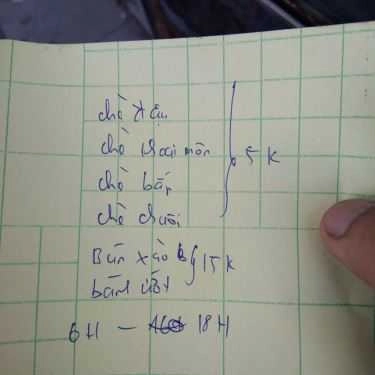 chè đậu
chè khoai môn
chè bắp
chè chuối
5K
Bún xào
bánh ướt
15K
6H - 18H